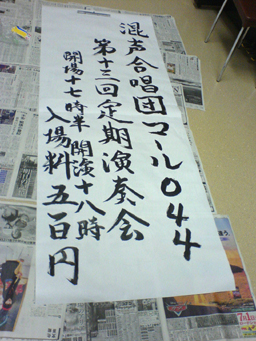 混声合唱団マール044
第十三回定期演奏会
開場十七時半 開演十八時
入場料五百円